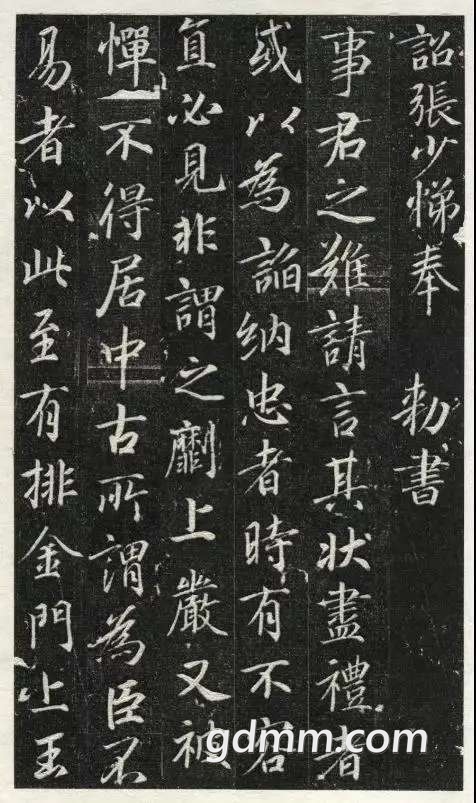 詔張少悌奉　勑書
事君之難請言其狀盡禮者
或以為諂納忠者時有不容
直必見非謂之劘上嚴又被
憚不得居中古所謂為臣不
易者以此至有排金門上玉
gdmm.com